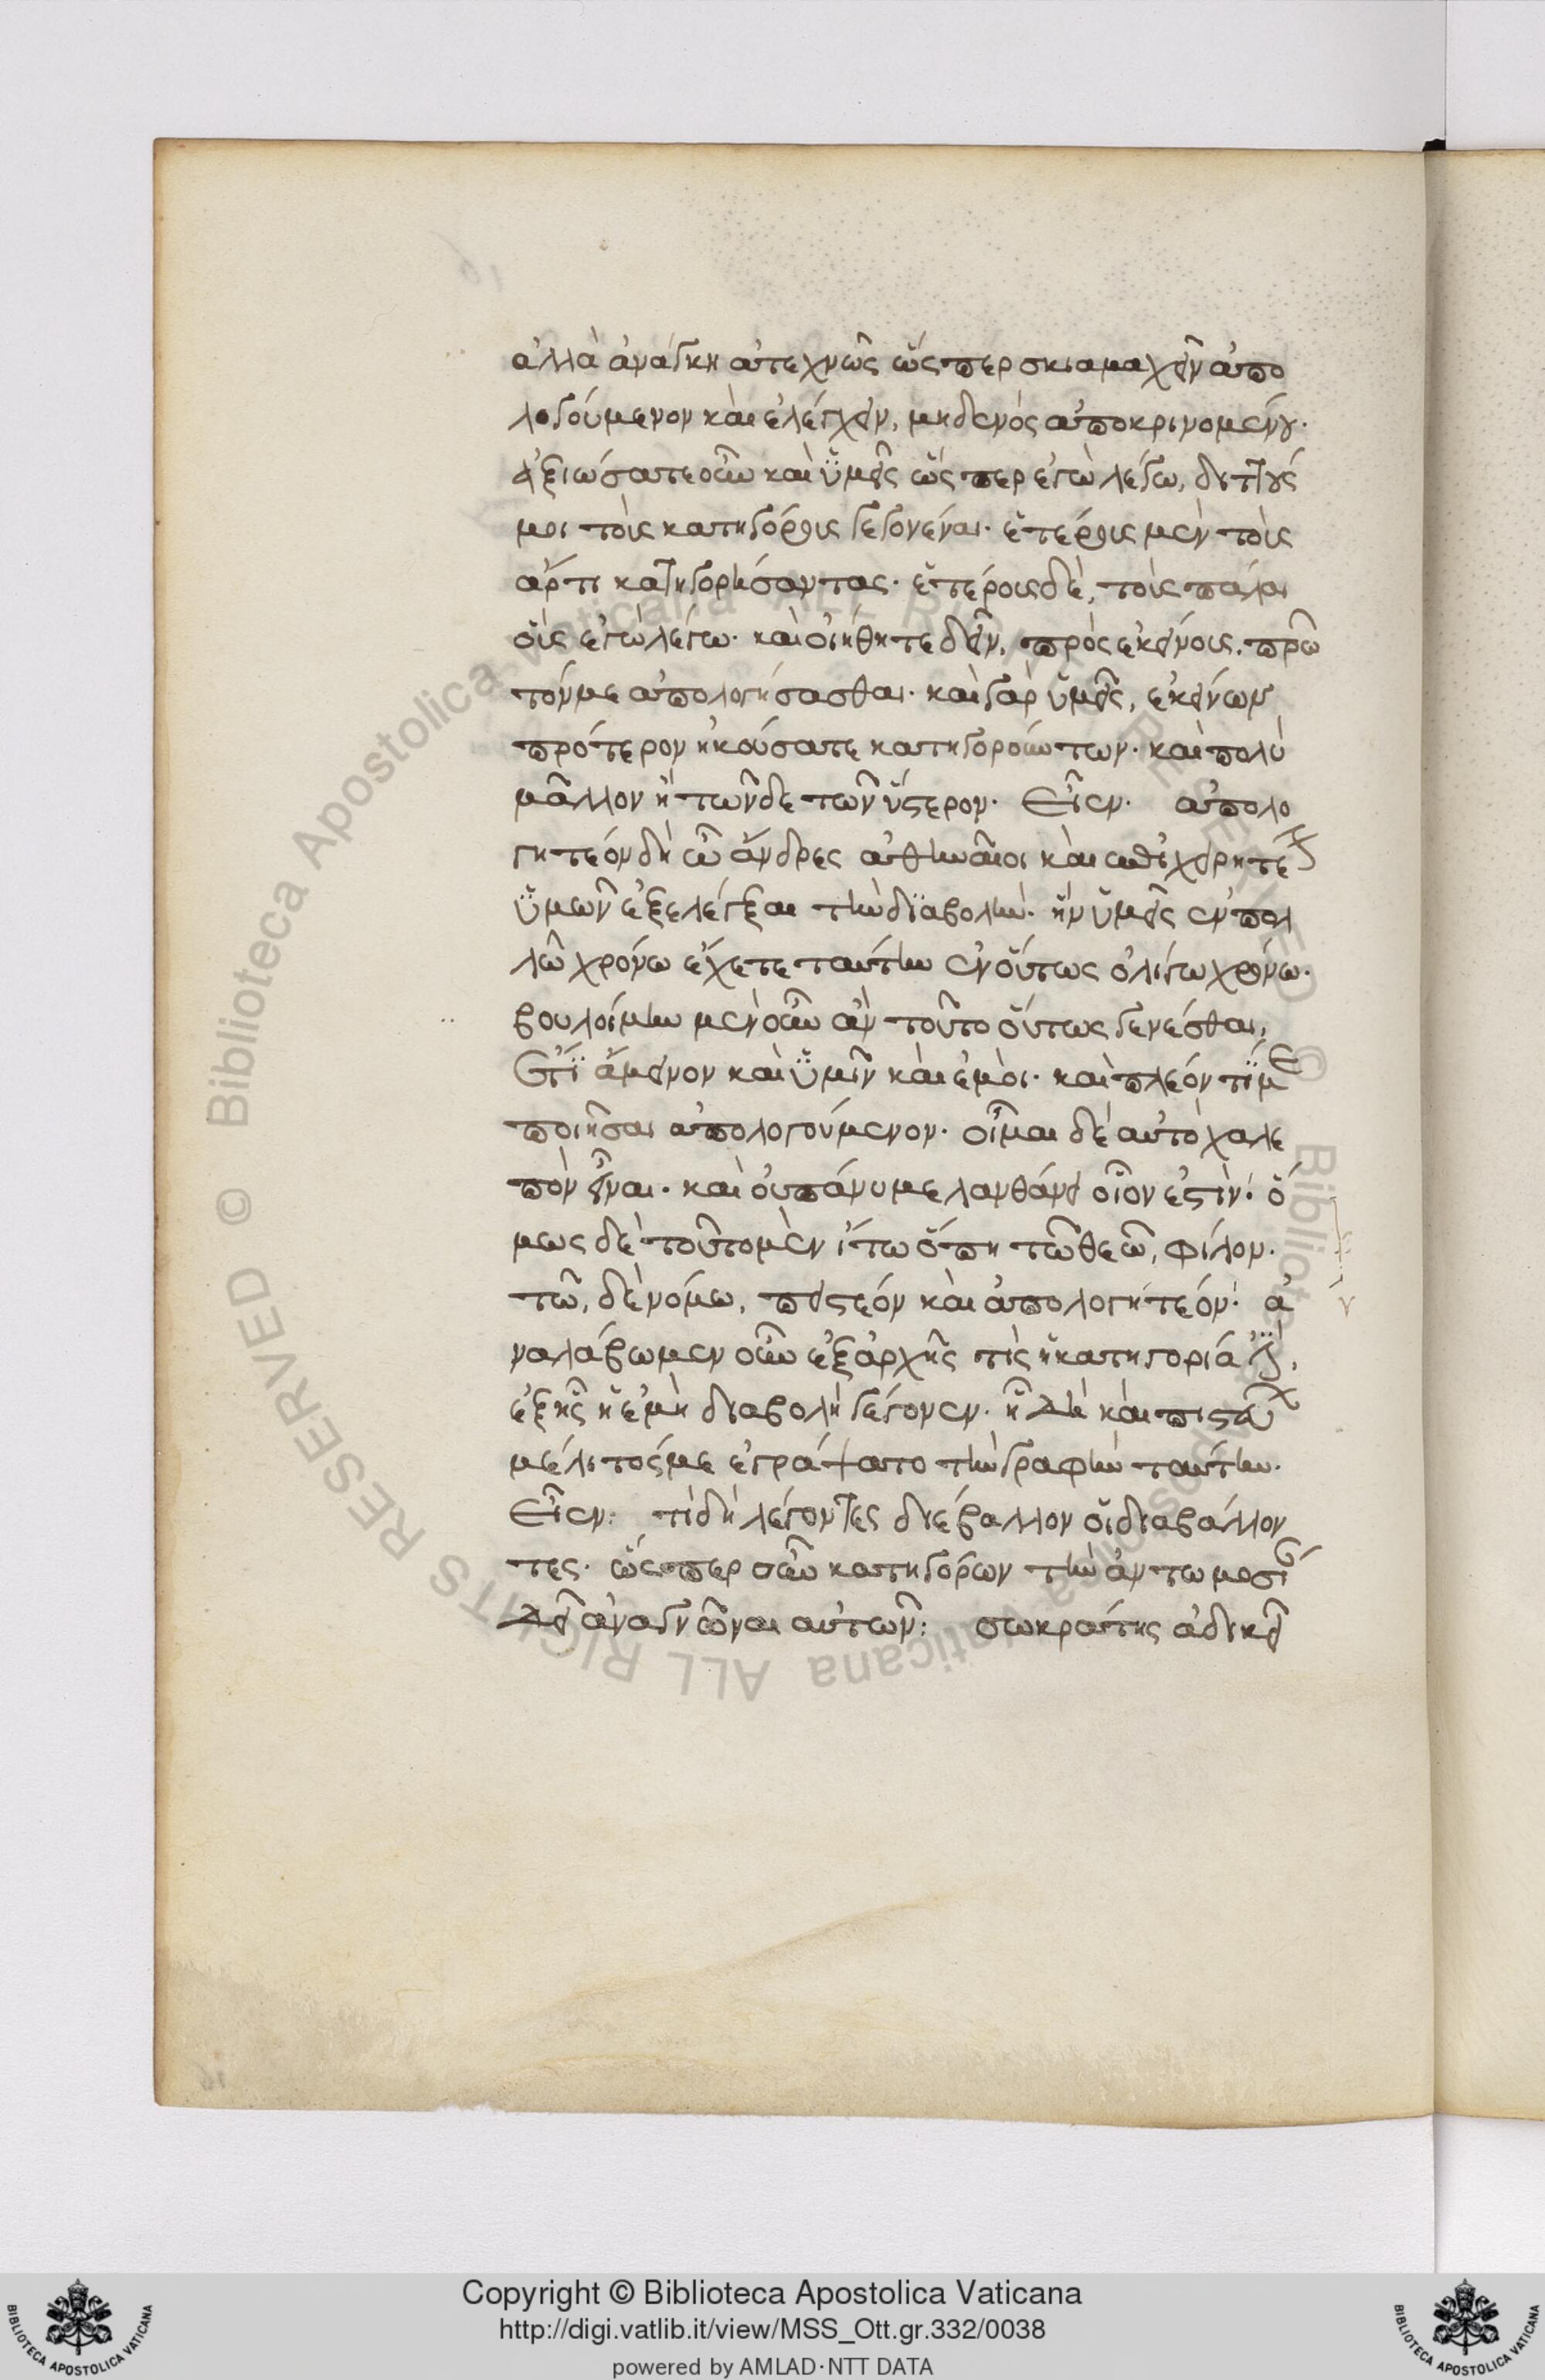 ἀλλὰ ἀνάγκη ἀτεχνῶς ὥσπερ σκιαμαχεῖν ἀπο
λογούμενον καὶ ἐλέγχειν, μηδενὸς ἀποκρινομένου·
ἀξιώσατε οὖν καὶ ὑμεῖς ὥσπερ ἐγὼ λέγω, διττούς
μοι τοὺς κατηγόρους γεγονέναι· ἑτέρους μὲν τοὺς
ἄρτι κατηγορήσαντας· ἑτέρους δὲ, τοὺς πάλαι
οὓς ἐγὼ λέγω· καὶ οἰήθητε δεῖν, πρὸς ἐκείνους, πρῶ
τόν με ἀπολογήσασθαι· καὶ γὰρ ὑμεῖς, ἐκείνων
πρότερον ἠκούσατε κατηγορούντων· καὶ πολὺ
μᾶλλον ἢ τῶνδε τῶν ὕστερον· Εἶεν· ἀπολο
γητέον δὴ ὦ ἄνδρες ἀθηναῖοι καὶ ἐπιχειρητέον
ὑμῶν ἐξελέγξαι τὴν διαβολὴν· ἣν ὑμεῖς ἐν πολ
λῶ χρόνω ἔχετε ταύτην ἐν οὕτως ὀλίγω χρόνω·
βουλοίμην μὲν οὖν ἂν τοῦτο οὕτως γενέσθαι,
εἴ τι ἄμεινον καὶ ὑμῖν καὶ ἐμοὶ· καὶ πλέον τί με
ποιῆσαι ἀπολογούμενον· οἶμαι δὲ αὐτὸ χαλε
πὸν εἶναι· καὶ οὐ πάνυ με λανθάνει οἷόν ἐστιν· ὅ
μως δὲ τοῦτο μὲν ἴτω ὅπη τῶ θεῶ, φίλον·
τῶ, δὲ νόμω, πειστέον καὶ ἀπολογητέον· ἀ
ναλάβωμεν οὖν ἐξ ἀρχῆς τίς ἡ κατηγορία ἐστὶν,
ἐξ ἧς ἡ ἐμὴ διαβολὴ γέγονεν· ᾗ δὴ καὶ πιστεύων
μέλιτός με ἐγράψατο τὴν γραφὴν ταύτην·
Εἶεν: τί δὴ λέγοντες διέβαλλον οἱ διαβάλλον
τες· ὥσπερ οὖν κατηγόρων τὴν ἀντωμοσίαν
δεῖ ἀναγνῶναι αὐτῶν: σωκράτης ἀδικεῖ
© Biblioteca Apostolica Vaticana ALL RIGHTS RESERVED
Copyright © Biblioteca Apostolica Vaticana
http://digi.vatlib.it/view/MSS_Ott.gr.332/0038
powered by AMLAD·NTT DATA
BIBLIOTECA APOSTOLICA VATICANA
BIBLIOTECA APOSTOLICA VATICANA